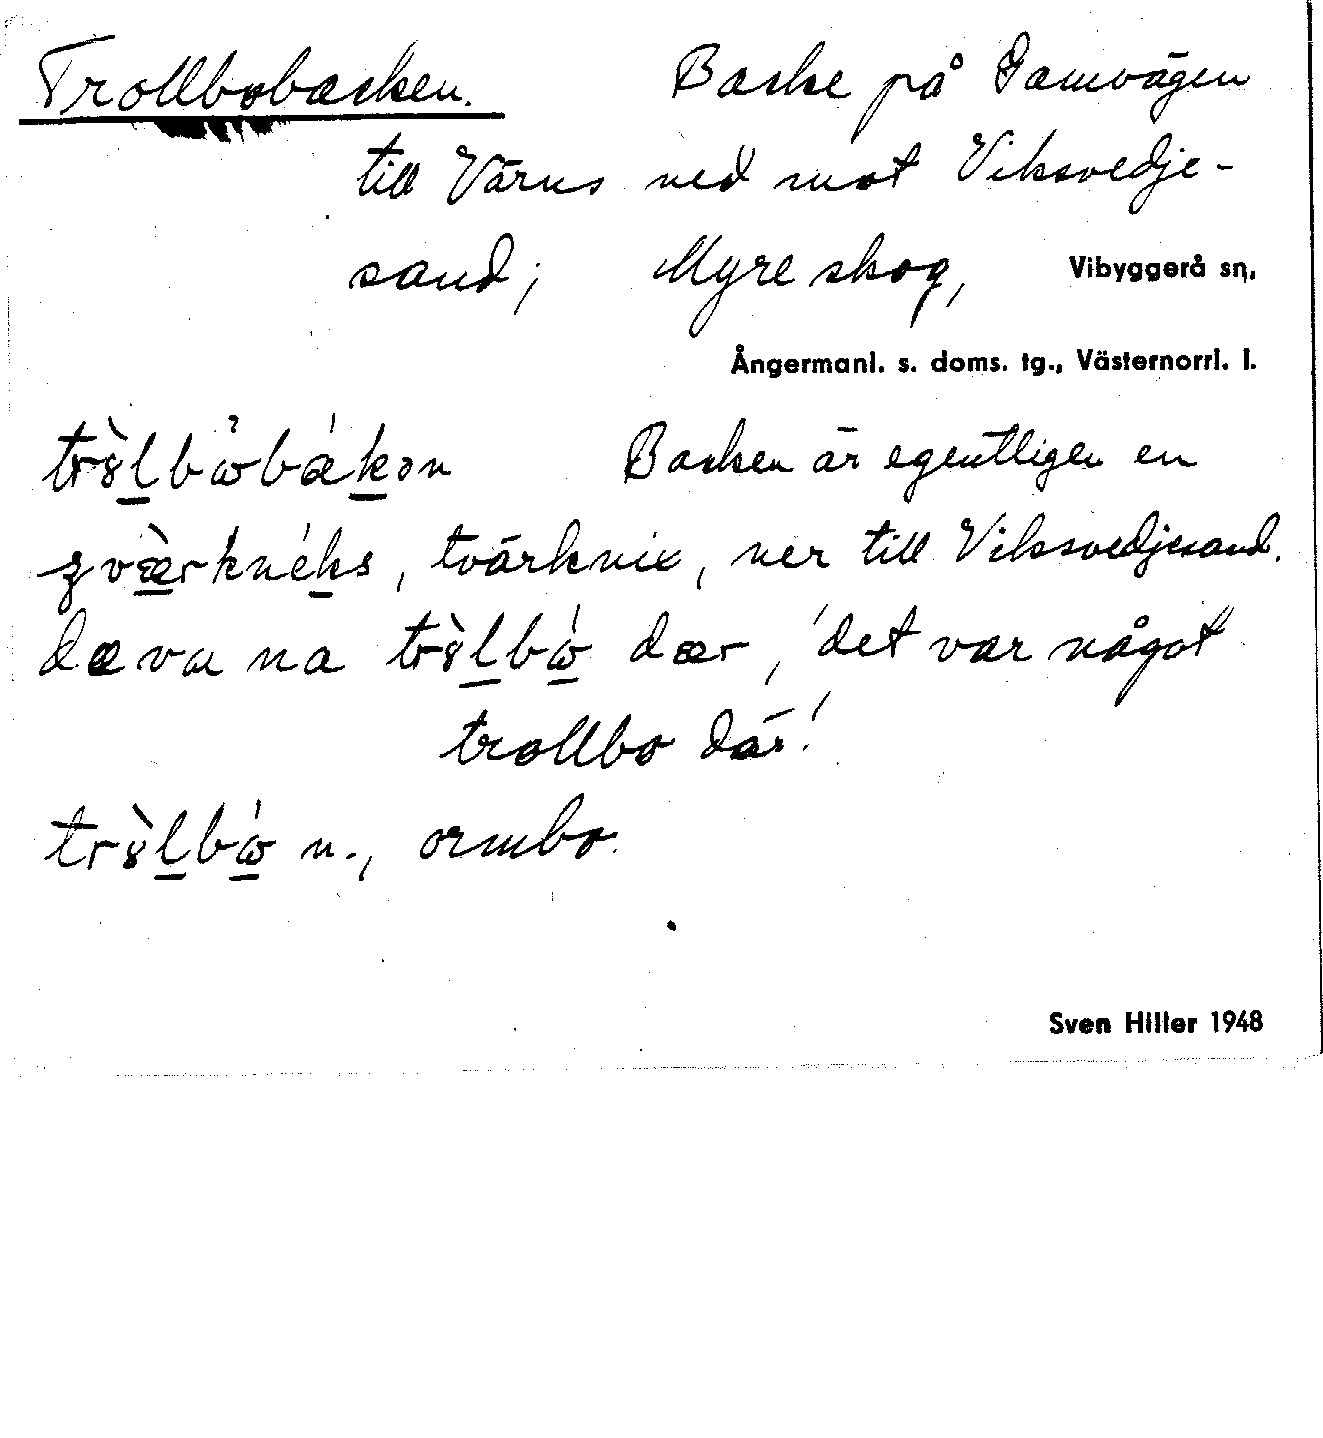 Trollbobacken. Backe på Gamvägen
till Värns ned mot Viksvedje-
sand; Myre skog, Vibyggerå sn,
Ångermanl. s. doms. tg., Västernorrl. l.
Backen är egentligen en
, tvärknix, ner till Viksvedjesand.
dæ va na dær, 'det var något
trollbo där!'
n., ormbo.
Sven Hiller 1948